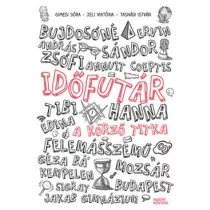 GIMESI DÓRA, JELI VIKTÓRIA, TASNÁDI ISTVÁN
BUJDOSÓNÉ ERVIN
ANDRÁS SÁNDOR
ZSÓFI ANNUIT COEPTIS
IDŐFUTÁR
TIBI HANNA
EDINA A KÖRZŐ TITKA
FÉLEMÁSSZEMŰ
GÉZA BÁ' MOZSÁR
KEMPELEN
SIGRAY BUDAPEST
JAKAB GIMNÁZIUM